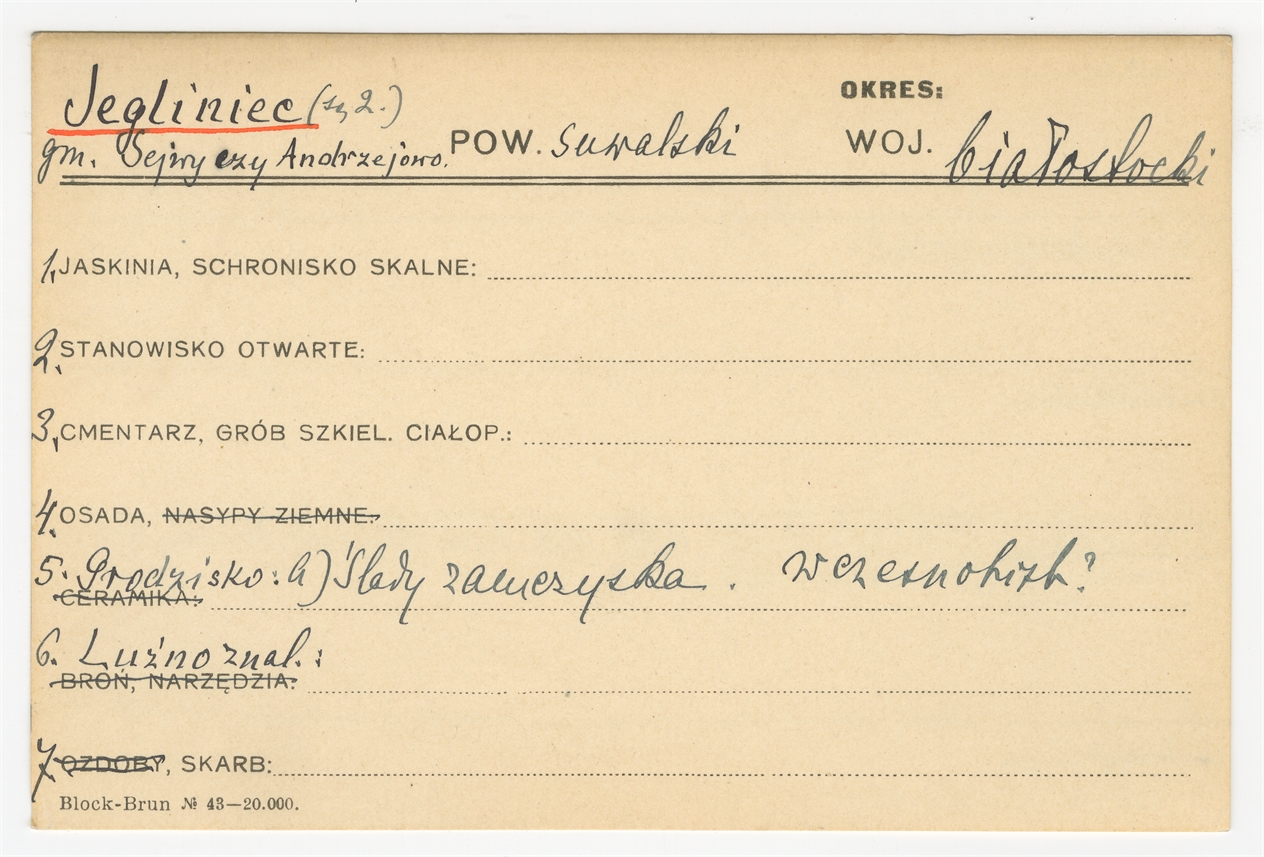 Jegliniec (są 2.) OKRES:
gm. Sejwy czy Andrzejewo. POW. suwalski WOJ. białostocki
1. JASKINIA, SCHRONISKO SKALNE:
2. STANOWISKO OTWARTE:
3. CMENTARZ, GRÓB SZKIEL. CIAŁOP.:
4. OSADA, NASYPY ZIEMNE:
5. Grodzisko: a) Ślady zamczyska. wczesnohist.?
CERAMIKA:
6. Luźno znal.:
BROŃ, NARZĘDZIA:
7. OZDOBY, SKARB:
Block-Brun № 43—20.000.